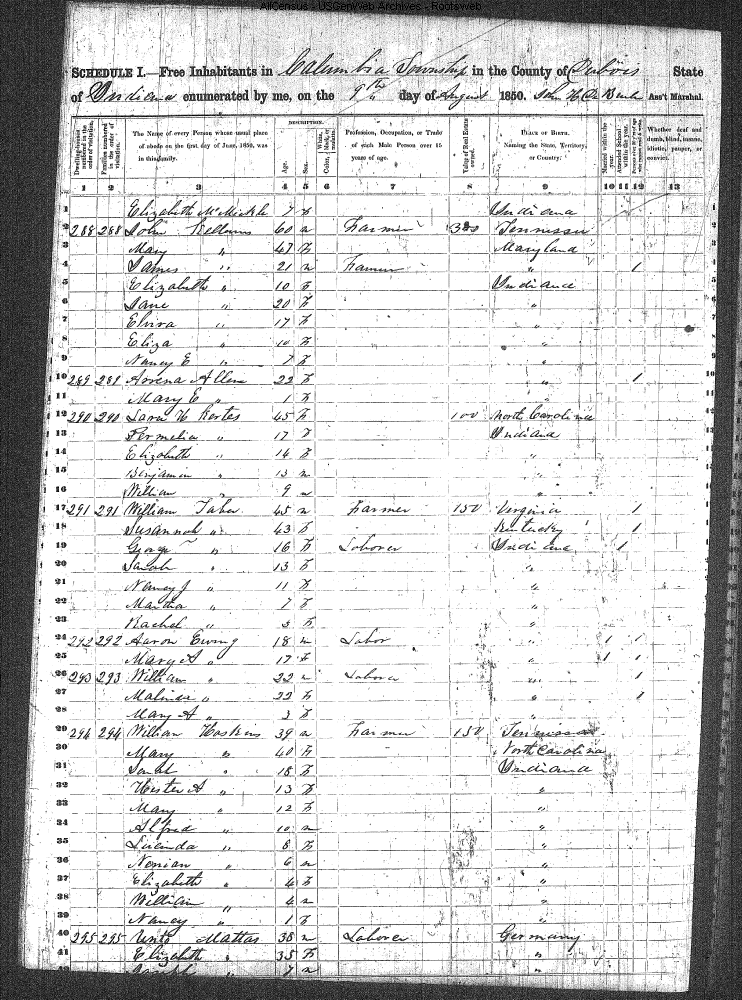 AllCensus - USGenWeb Archives - Rootsweb
SCHEDULE I.—Free Inhabitants in Columbia Township in the County of Dubois State
of Indiana enumerated by me, on the 9th day of August 1850. John H Ass't Marshal.
DESCRIPTION.
Dwelling-houses numbered in the order of visitation.
Families numbered in the order of visitation.
The Name of every Person whose usual place of abode on the first day of June, 1850, was in this family.
Age.
Sex.
White, Black, or mulatto.
Color,
Profession, Occupation, or Trade of each Male Person over 15 years of age.
Value of Real Estate owned.
PLACE OF BIRTH. Naming the State, Territory, or Country.
Married within the year.
Attended School within the year.
Whether deaf and dumb, blind, insane, idiotic, pauper, or convict.
1 2 3 4 5 6 7 8 9 10 11 12 13
1 Elizabeth McMickle 7 f Indiana
2 288 288 John Kellums 60 m Farmer 300 Tennissee
3 Mary " 47 f Maryland
4 James " 21 m Farmer " 1
5 Elizabeth " 10 f Indiana
6 Jane " 20 f "
7 Elvira " 17 f "
8 Eliza " 10 f "
9 Nancy E " 7 f "
10 289 289 Allen 22 f " 1
11 Mary E " 1 f "
12 290 290 45 f 100 North Carolina
13 Permelia " 17 f Indiana
14 Elizabeth " 14 f "
15 Benjamin " 13 m "
16 William " 9 m "
17 291 291 William Taber 45 m Farmer 150 Virginia 1
18 Susannah " 43 f Kentucky 1
19 George " 16 Laborer Indiana 1
20 Sarah " 13 f "
21 Nancy J " 11 f "
22 Martha " 7 f "
23 Rachel " 3 f "
24 292 292 Aaron Ewing 18 m Labor " 1 1
25 Mary A " 17 f " 1 1
26 293 293 William " 22 m Laborer " 1
27 Malinda " 22 f " 1
28 Mary A " 3 f "
29 294 294 William Hoskins 39 m Farmer 150 Tennissee
30 Mary " 40 f North Carolina
31 Sarah " 18 f Indiana
32 Hester A " 13 f "
33 Mary " 12 f "
34 Alfred " 10 m "
35 Lucinda " 8 f "
36 " 6 m "
37 Elizabeth " 4 f "
38 William " 4 m "
39 Nancy " 1 f "
40 295 295 Mattas 38 m Laborer Germany
41 Elizabeth " 35 f "
42 " 7 m "